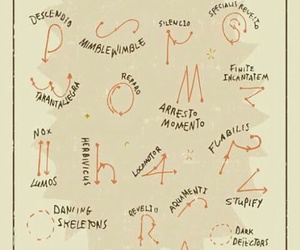 DESCENDIO
MIMBLEWIMBLE
SILENCIO
SPECIALIS REVELIO
TARANTALLEGRA
REPARO
ARRESTO
MOMENTO
FINITE
INCANTATEM
NOX
LUMOS
HERBIVICUS
LOCOMOTOR
FLABILIS
STUPIFY
DANCING
SKELETONS
REVELIO
AQUAMENTI
DARK
DETECTORS